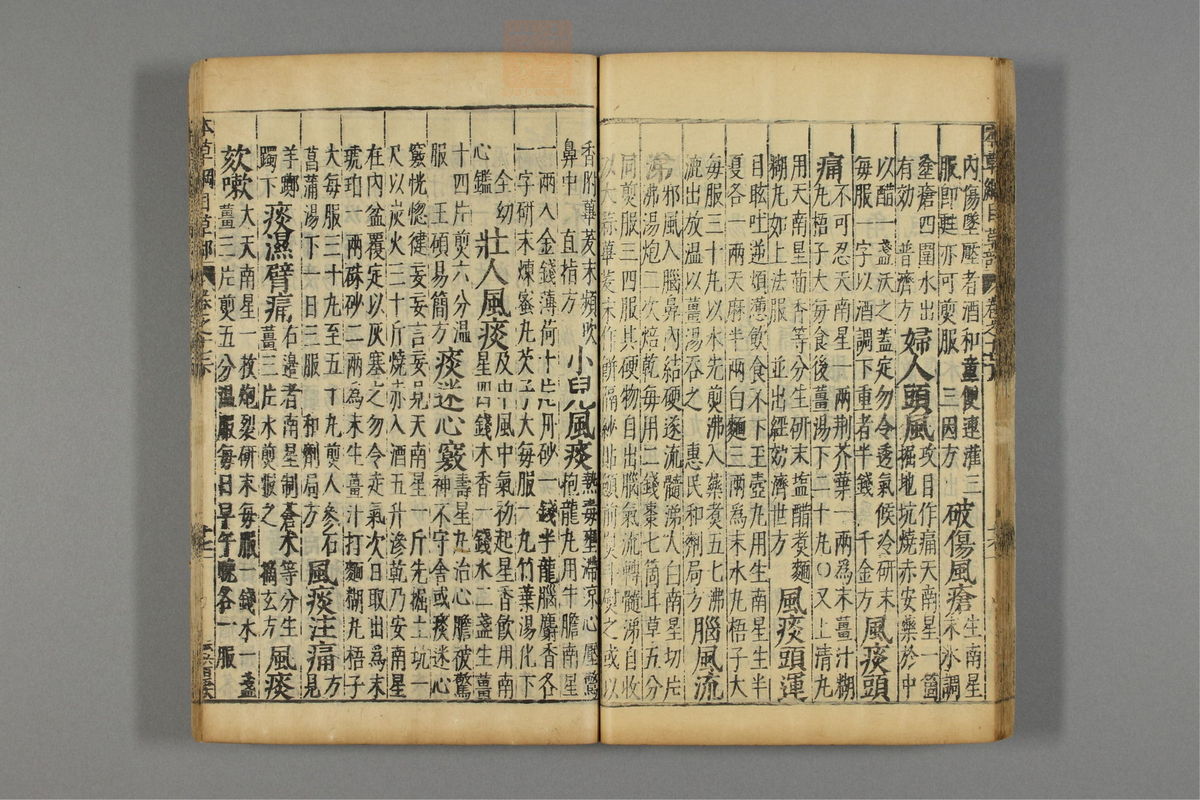 本草綱目草部 卷之十七
內傷墜壓者酒和童便連灌三
服即甦亦可煎服 三因方 破傷風瘡 生南星
末水調
塗瘡四圍水出
有効 普濟方 婦人頭風 攻目作痛天南星一箇
掘地坑燒赤安藥於中
以醋一盞沃之蓋定勿令透氣候冷研末
每服一字以酒調下重者半錢 千金方 風痰頭
痛 不可忍天南星一兩荆芥葉一兩為末薑汁糊
丸梧子大每食後薑湯下二十丸○又上清丸
用天南星茴香等分生研末塩醋煮麵
糊丸如上法服 並出經効濟世方 風痰頭運
目眩吐逆煩懣飲食不下玉壺丸用生南星生半
夏各一兩天麻半兩白麵三兩為末水丸梧子大
每服三十丸以水先煎沸入藥煮五七沸
漉出放温以薑湯吞之 惠民和劑局方 腦風流
涕 邪風入腦鼻內結硬遂流髓涕大白南星切片
沸湯炮二次焙乾每用二錢棗七箇甘草五分
同煎服三四服其硬物自出腦氣流轉髓涕自收
以大蒜蓽茇末作餅隔紗貼顖前熨斗熨之或以
香附蓽茇末頻吹
鼻中 直指方 小兒風痰 熱毒壅滯凉心壓驚
抱龍丸用牛膽南星
一兩入金錢薄荷十片丹砂一錢半龍腦麝香各
一字研末煉蜜丸芡子大每服一丸竹葉湯化下
全幼
心鑑 壯人風痰 及中風中氣初起星香飲用南
星四錢木香一錢水二盞生薑
十四片煎六分温
服 王碩易簡方 痰迷心竅 壽星丸治心膽被驚
神不守舍或痰迷心
竅恍惚健忘妄言妄見天南星一斤先掘土坑一
尺以炭火三十斤燒赤入酒五升滲乾乃安南星
在內盆覆定以灰塞之勿令走氣次日取出為末
琥珀一兩硃砂二兩為末生薑汁打麵糊丸梧子
大每服三十丸至五十丸煎人參石
菖蒲湯下一日三服 和劑局方 風痰注痛 方
見
羊躑
躅下 痰濕臂痛 右邊者南星制蒼术等分生
薑三片水煎服之 摘玄方 風痰
咳嗽 大天南星一枚炮裂研末每服一錢水一盞
薑三片煎五分温服每日早午晚各一服
本草綱目草部 卷之十七